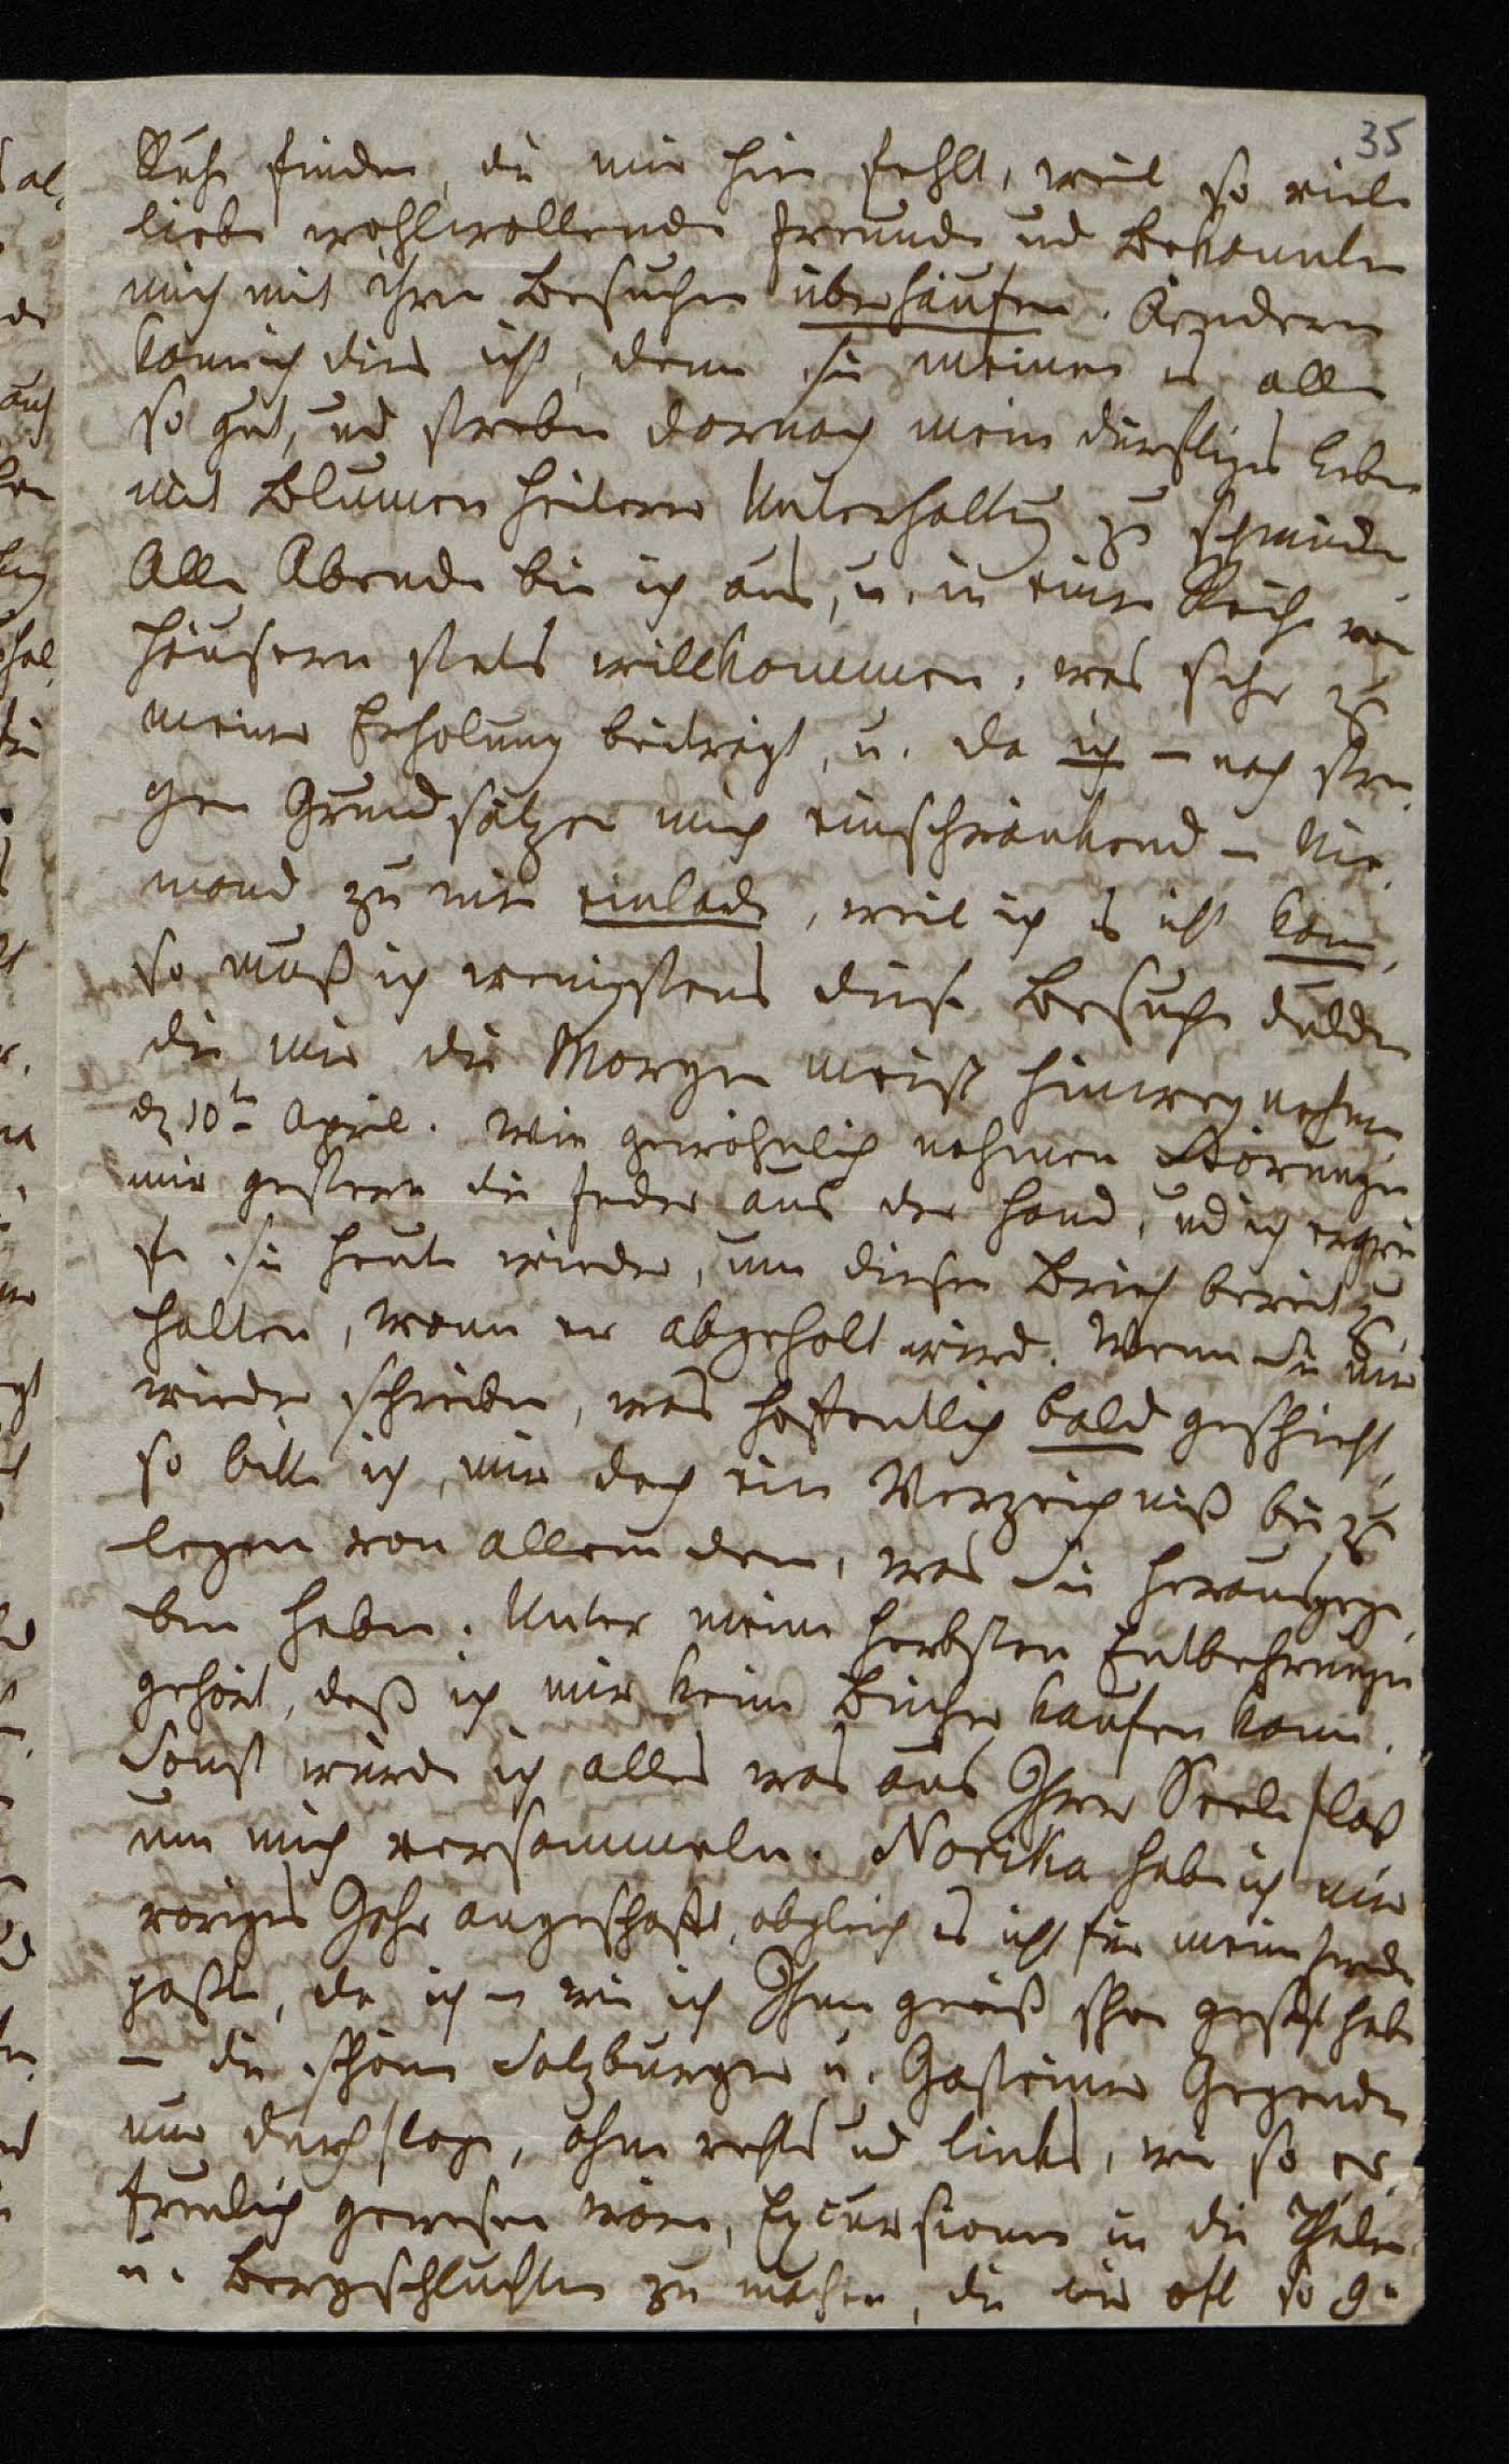 35
Ruhe finden, die mir hier fehlt, weil so viele
liebe wohlwollende Freunde und Bekannte
mich mit ihren Besuchen überhäufen. Aendern
kann ich dies nicht, denn sie meinen es alle
so gut, und streben darnach mein dürftiges Leben
mit Blumen heiterer Unterhaltung zu schmücken.
Alle Abende bin ich aus, u. in einer Reihe von
Häusern stets willkommen, was sehr zu
meiner Erholung beiträgt, u. da ich – nach stren
gen Grundsätzen mich einschränkend – Nie,
mand zu mir einlade, weil ich es nicht kann,
so muß ich wenigstens diese Besuche dulden
die mir die Morgen meist hinwegnehmen
d 10ten April. Wie gewöhnlich nahmen Störungen
mir gestern die Feder aus der Hand, und ich ergrei
fe sie heute wieder, um diesen Brief bereit zu
halten, wann er abgeholt wird. Wenn Sie mir
wieder schreiben, was hoffentlich bald geschieht,
so bitte ich, mir doch ein Verzeichniß bei zu
legen von allem dem, was Sie herausgege,
ben haben. Unter meine herbsten Entbehrungen
gehört, daß ich mir keine Bücher kaufen kann.
Sonst würde ich alles was aus Ihrer Seele floß
um mich versammeln. Norika habe ich mir
voriges Jahr angeschafft, obgleich es nicht für meine
paßte, da ich – wie ich Ihnen gewiß schon gesagt habe
– die schönen Salzburger u. Gasteiner Gegenden
nur durchflog, ohne rechts und links, wie so er,
freulich gewesen wäre, Excursionen in die Thäler
u. Bergschluchten zu machen, die wir oft so ge